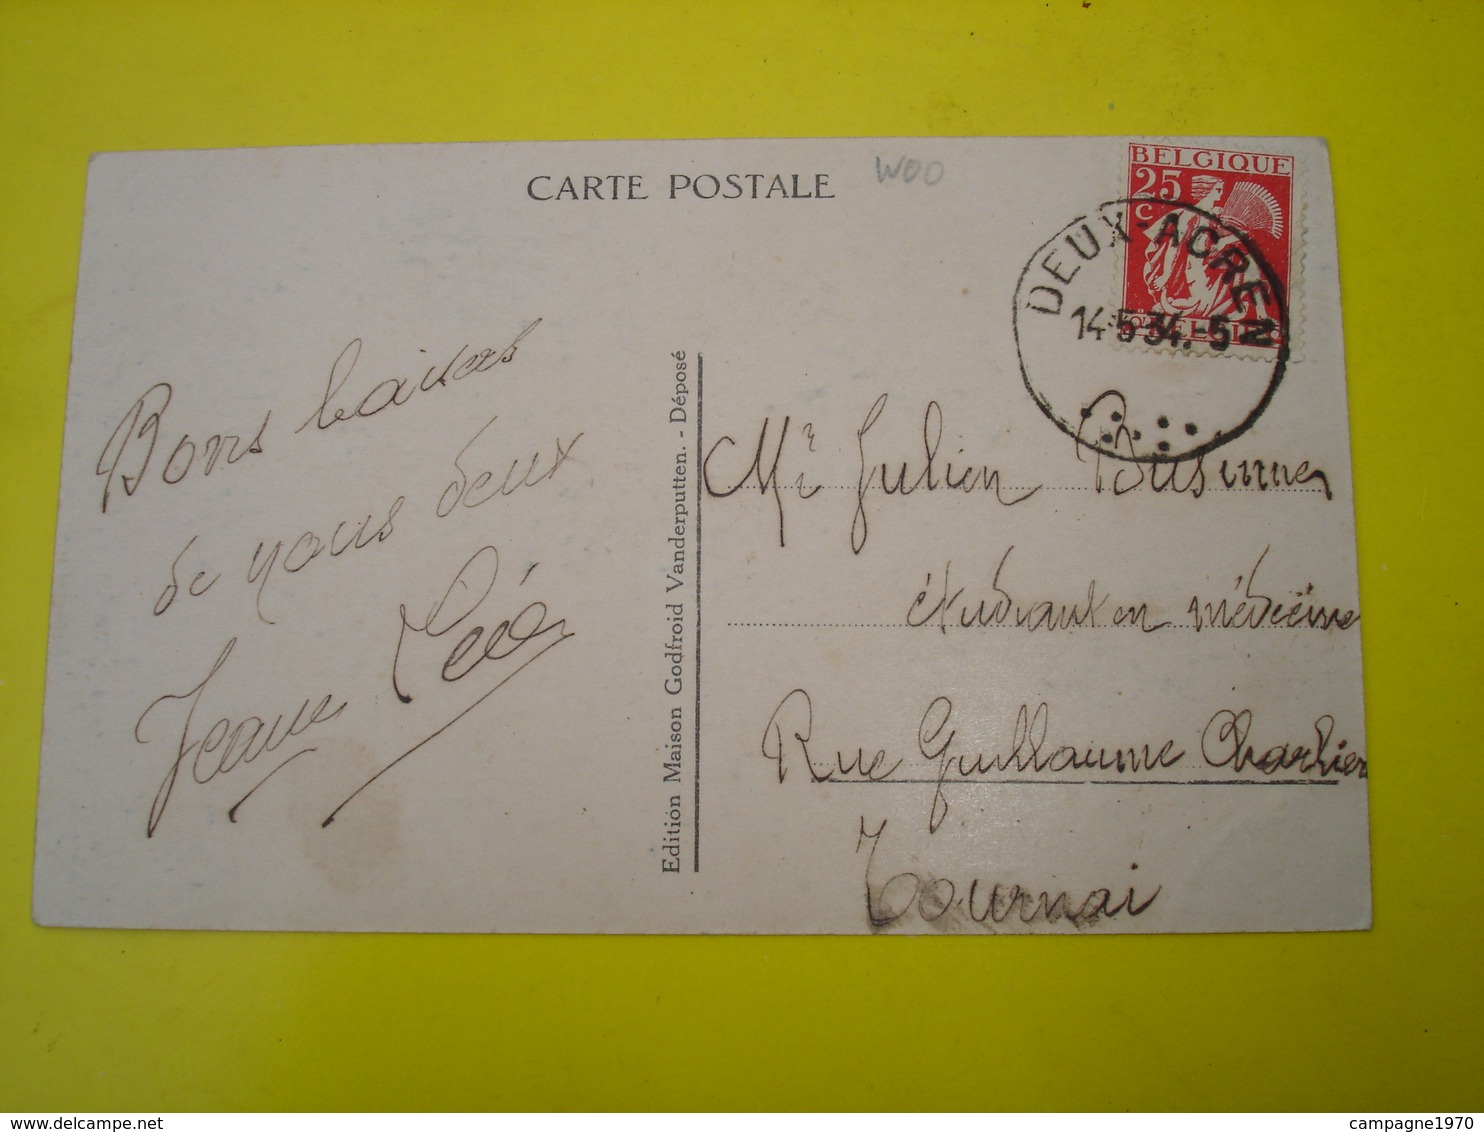 CARTE POSTALE
WOO
BELGIQUE
25
C
DEUX-ACREN
14-5-34.-5
Bons baisers
de nous deux
Jeanne Léon
Edition Maison Godfroid Vanderputten. - Déposé
Mr Julien
étudiant en médecine
Rue Guillaume Charlier
Tournai
campagne1970